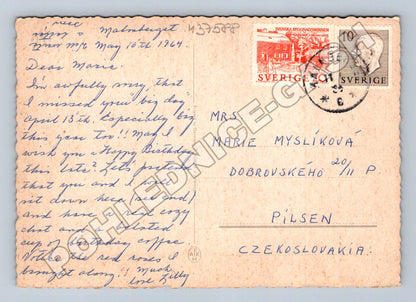 Malmberget
May 10th 1964.
Dear Marie.
I'm awfully sorry, that
I missed your big day
April 13th. Especially big
this year too!! May I
wish you a Happy Birthday
this late? Let's pretend
that you and I can
sit down here (see end)
and have a real cozy
chat and a belated
cup of birthday coffee
the red roses I
brought along!! Much
love Lilly
437588
SVERIGE
SVERIGE
MRS.
MARIE MYSLÍKOVÁ
DOBROVSKÉHO 20/11 P.
PILSEN
CZEKOSLOVAKIA.
POHLEDNICE-G